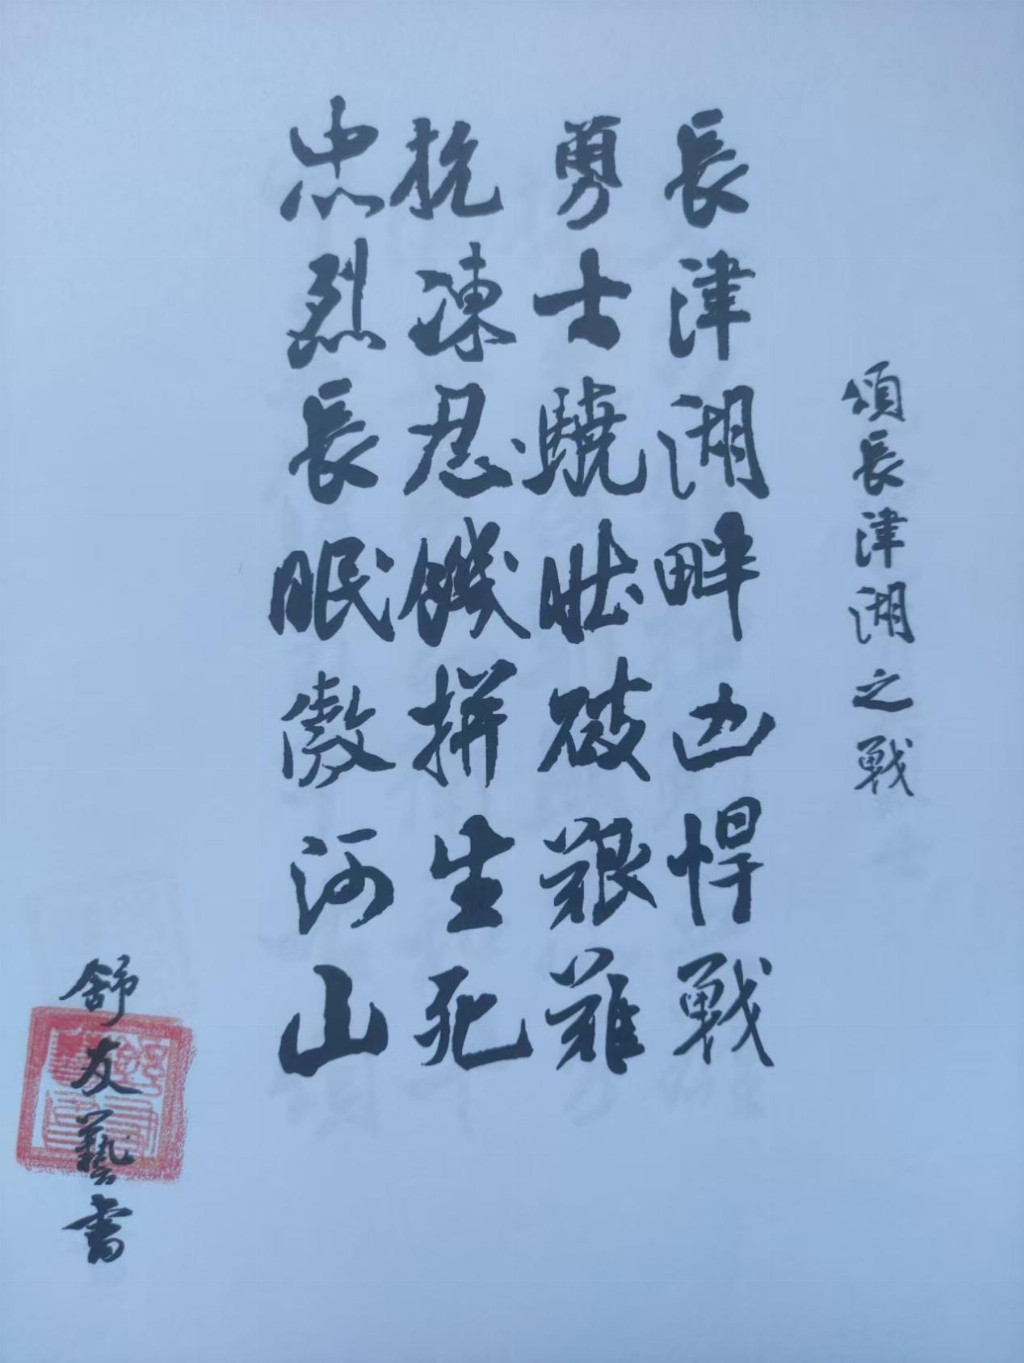 頌長津湖之戰
長津湖畔凶悍戰
勇士驍壯破艱難
抗凍忍饑拼生死
忠烈長眠傲河山
舒友藝書